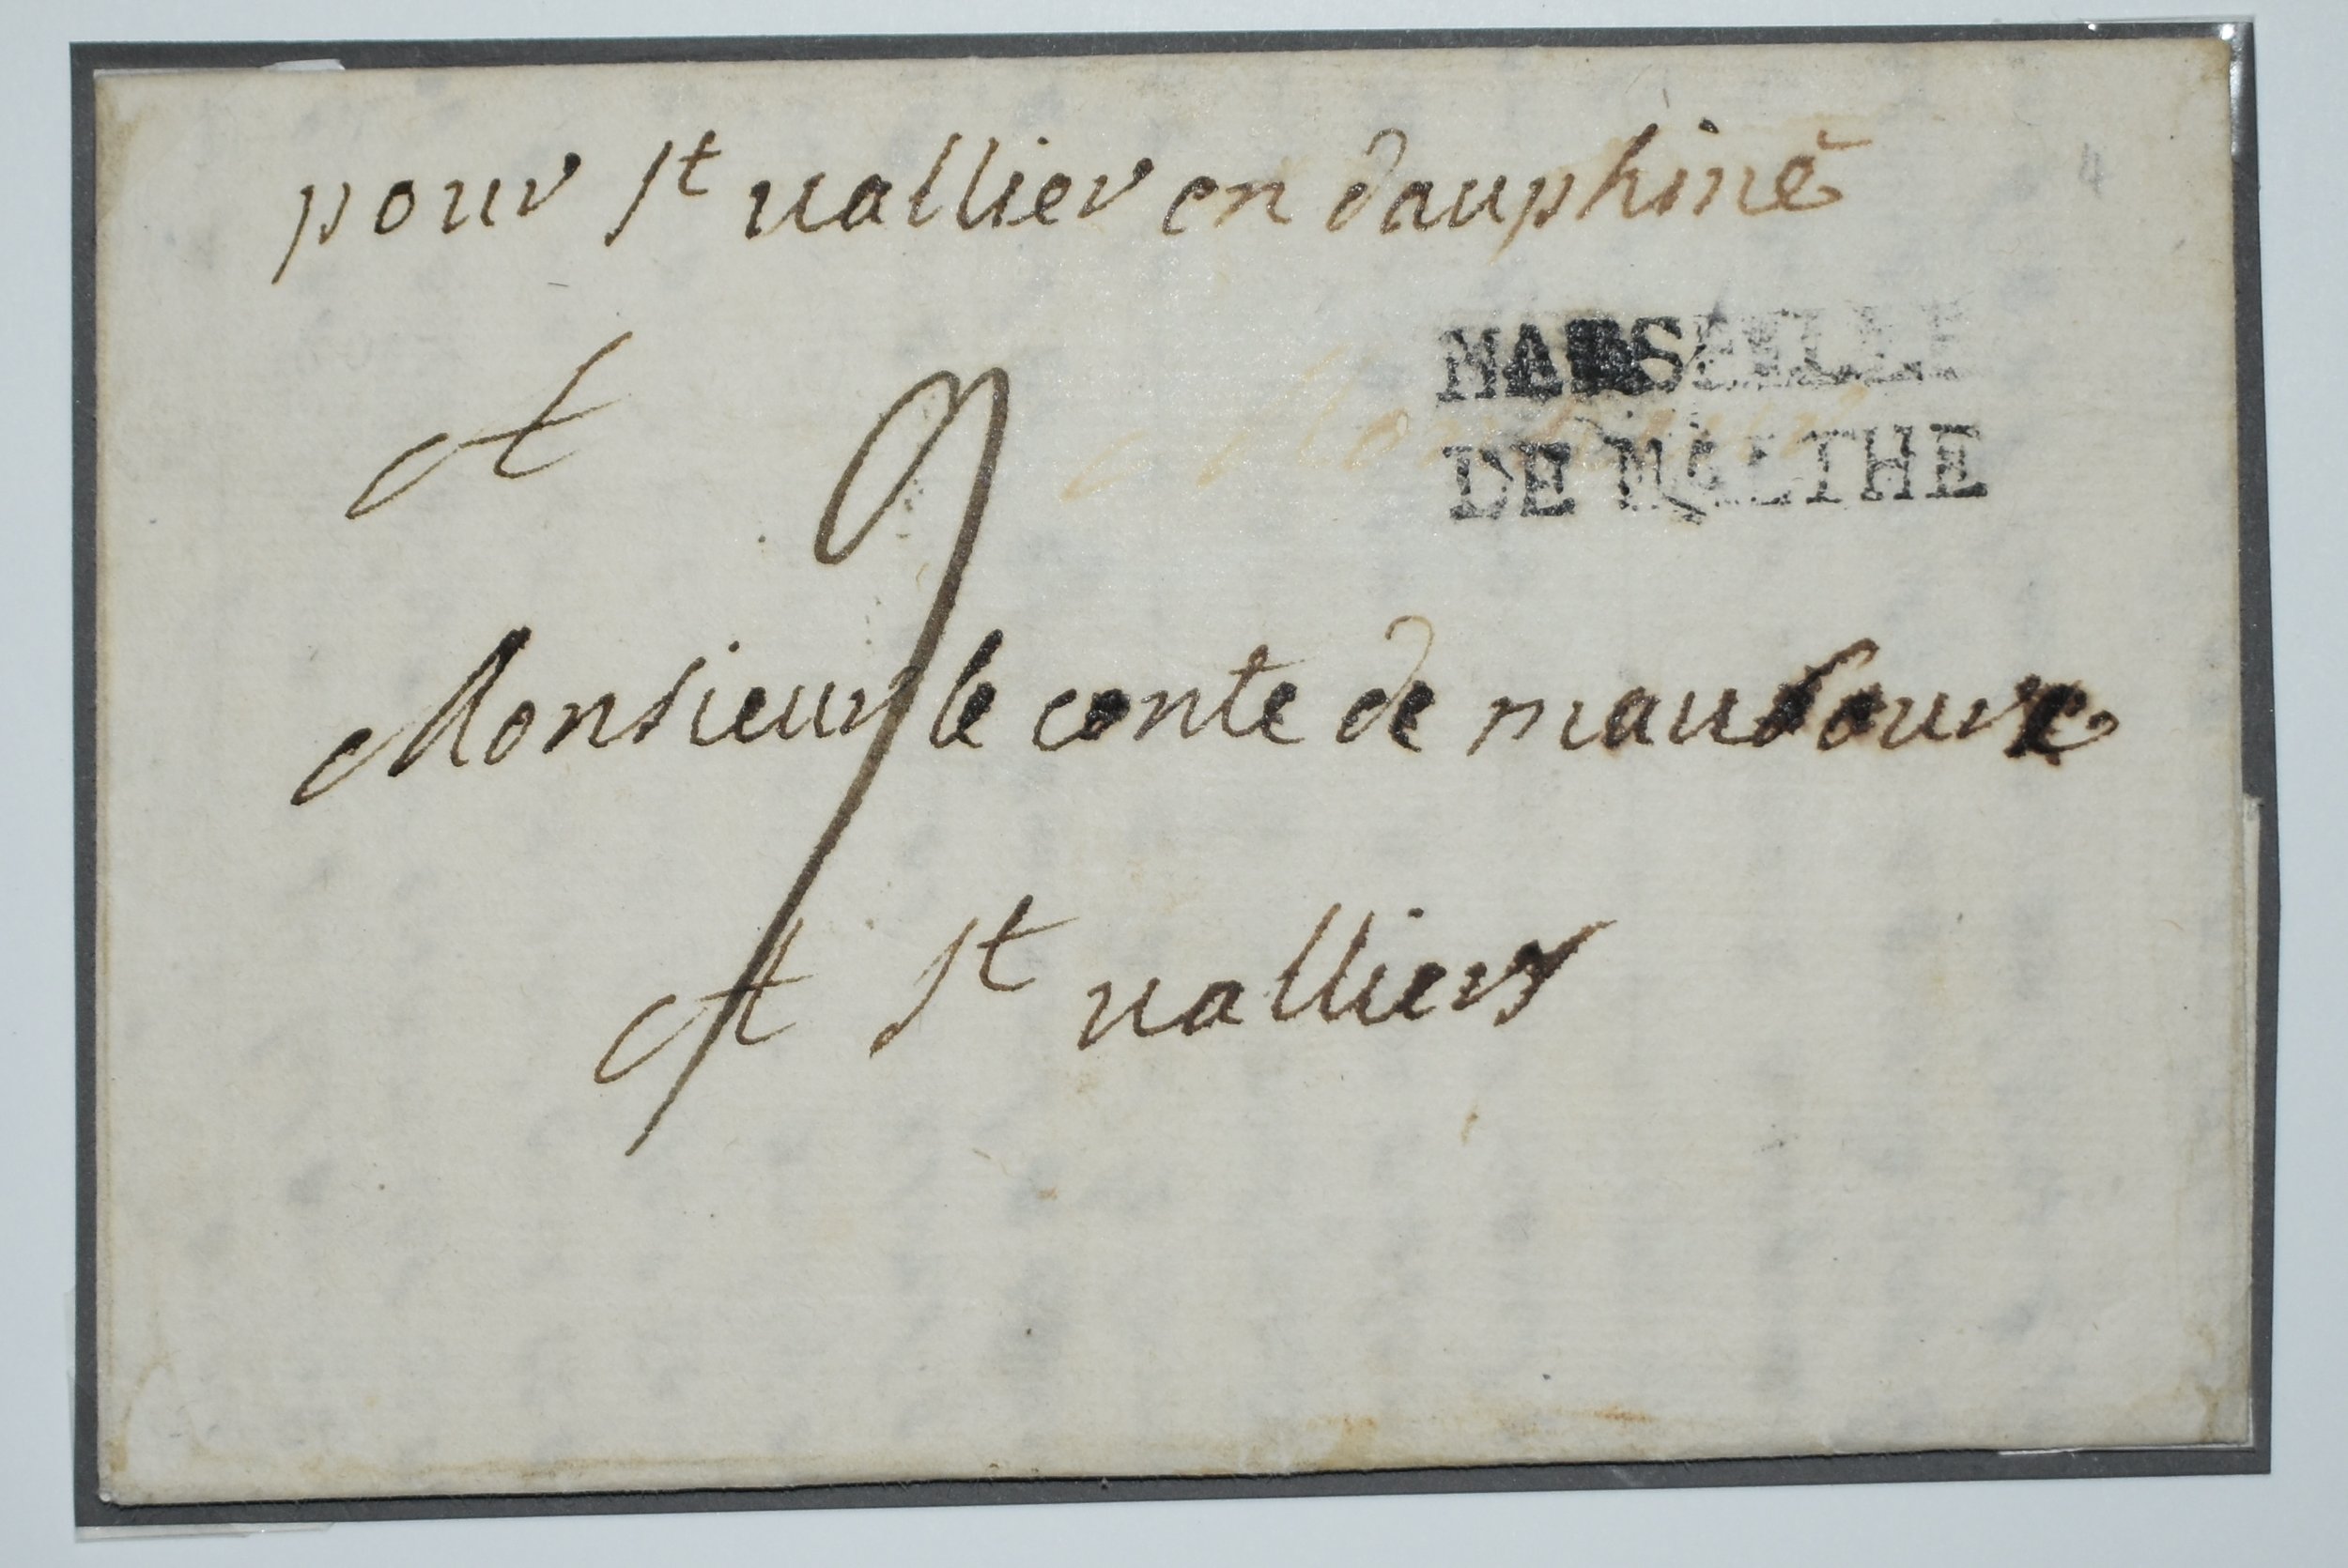 pour St vallier en dauphiné
4
MARSEILLE
A
9
DE MALTHE
Monsieur le conte de
A St valliers